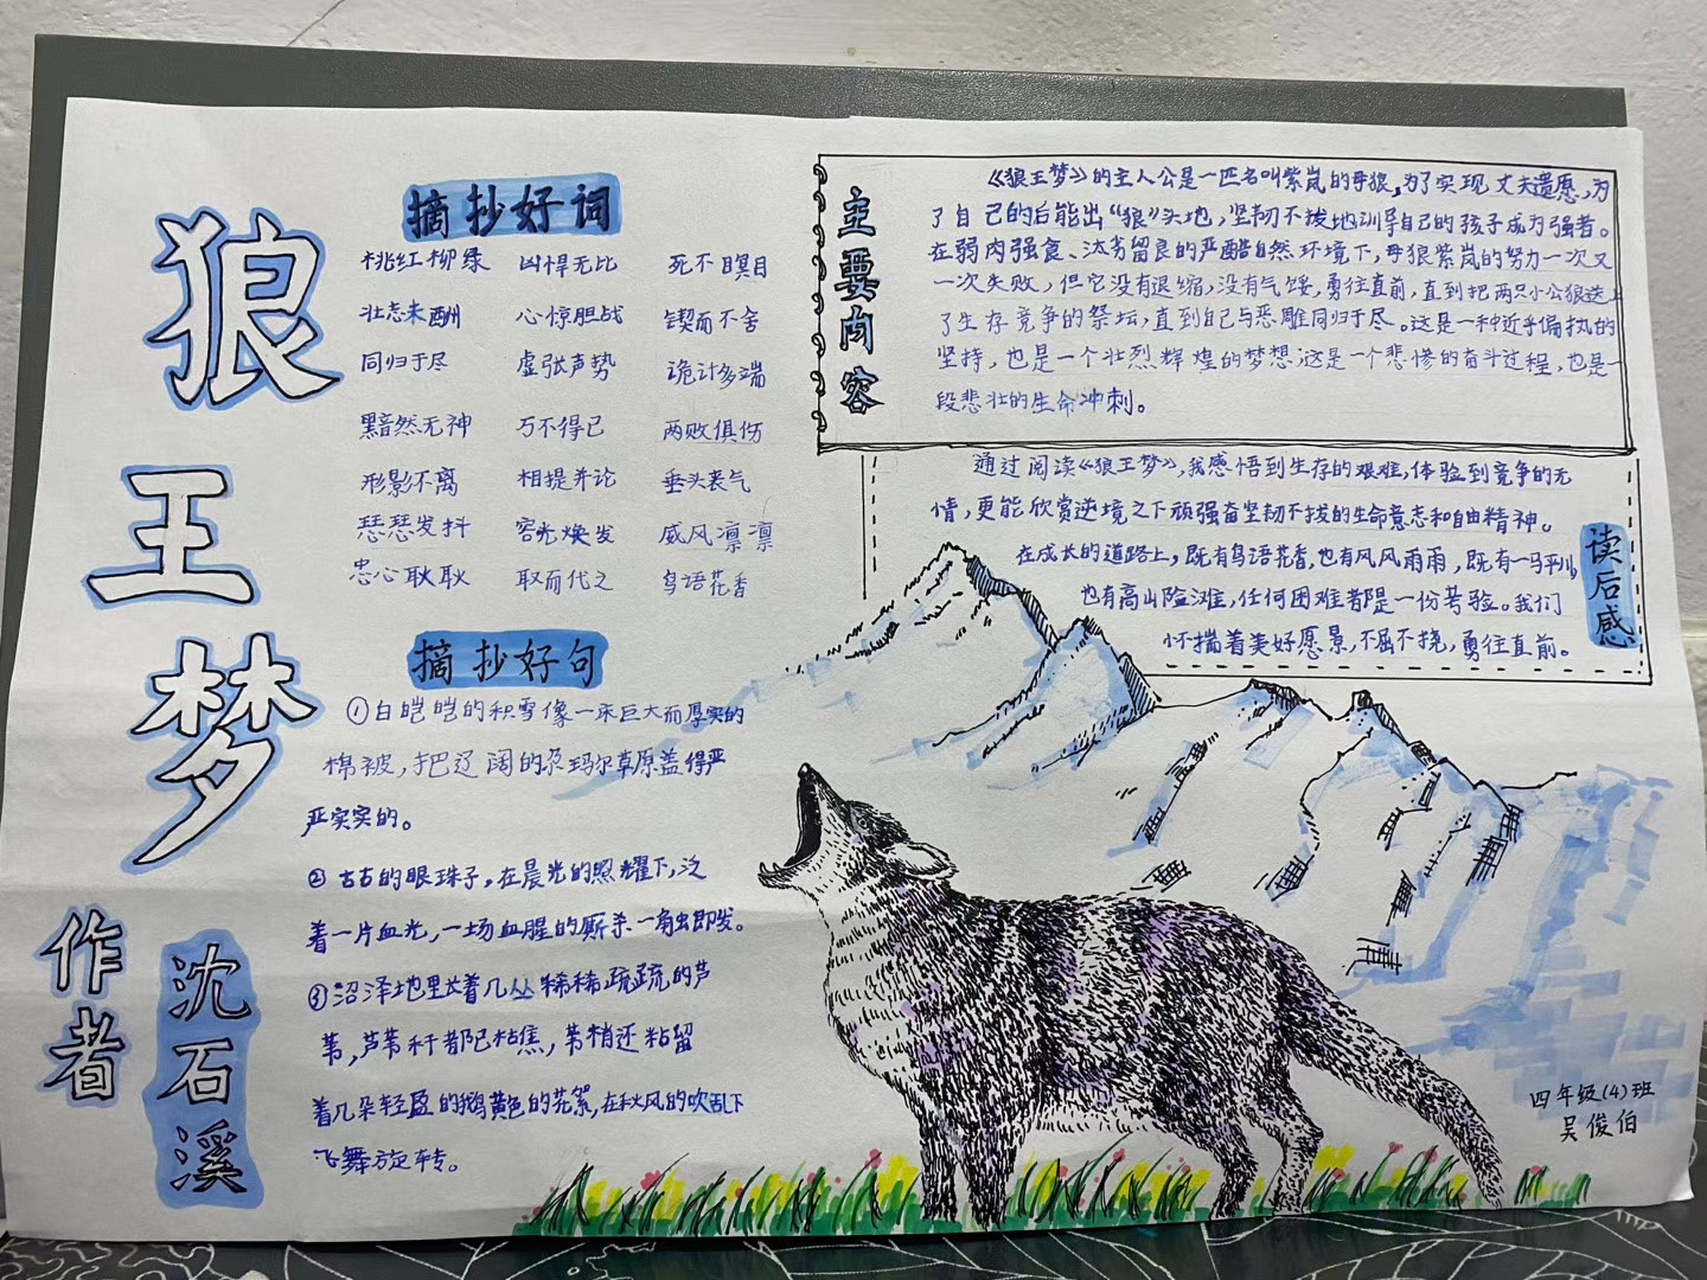 狼王梦
作者
沈石溪
摘抄好词
桃红柳绿 凶悍无比 死不瞑目
壮志未酬 心惊胆战 锲而不舍
同归于尽 虚张声势 诡计多端
黯然无神 万不得已 两败俱伤
形影不离 相提并论 垂头丧气
瑟瑟发抖 容光焕发 威风凛凛
忠心耿耿 取而代之 鸟语花香
摘抄好句
①白皑皑的积雪像一床巨大而厚实的
棉被，把辽阔的尕玛尔草原盖得严
严实实的。
②古古的眼珠子，在晨光的照耀下，泛
着一片血光，一场血腥的厮杀一触即发。
③沼泽地里长着几丛稀稀疏疏的芦
苇，芦苇秆都已枯焦，苇梢还粘留
着几朵轻盈的鹅黄色的花絮，在秋风的吹乱下
飞舞旋转。
主要内容
《狼王梦》的主人公是一匹名叫紫岚的母狼，为了实现丈夫遗愿，为
了自己的后能出“狼”头地，坚韧不拔地训导自己的孩子成为强者。
在弱肉强食、汰劣留良的严酷自然环境下，母狼紫岚的努力一次又
一次失败，但它没有退缩，没有气馁，勇往直前，直到把两只小公狼送上
了生存竞争的祭坛，直到自己与恶雕同归于尽。这是一种近乎偏执的
坚持，也是一个壮烈辉煌的梦想，这是一个悲惨的奋斗过程，也是一
段悲壮的生命冲刺。
读后感
通过阅读《狼王梦》，我感悟到生存的艰难，体验到竞争的无
情，更能欣赏逆境之下顽强奋坚韧不拔的生命意志和自由精神。
在成长的道路上，既有鸟语花香，也有风风雨雨，既有一马平川，
也有高山险滩，任何困难都是一份考验。我们
怀揣着美好愿景，不屈不挠，勇往直前。
四年级(4)班
吴俊伯